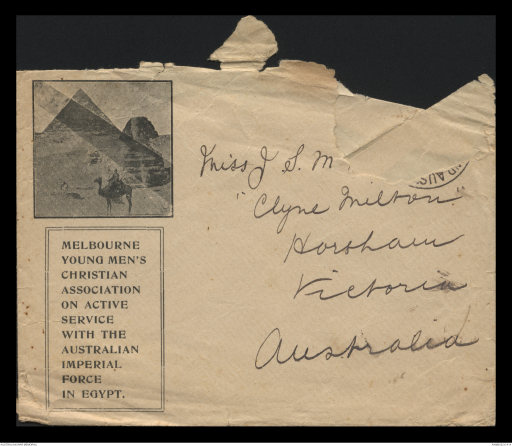 Miss J S. M
"Clyne Milton"
Horsham
Victoria
Australia
MELBOURNE
YOUNG MEN'S
CHRISTIAN
ASSOCIATION
ON ACTIVE
SERVICE
WITH THE
AUSTRALIAN
IMPERIAL
FORCE
IN EGYPT.